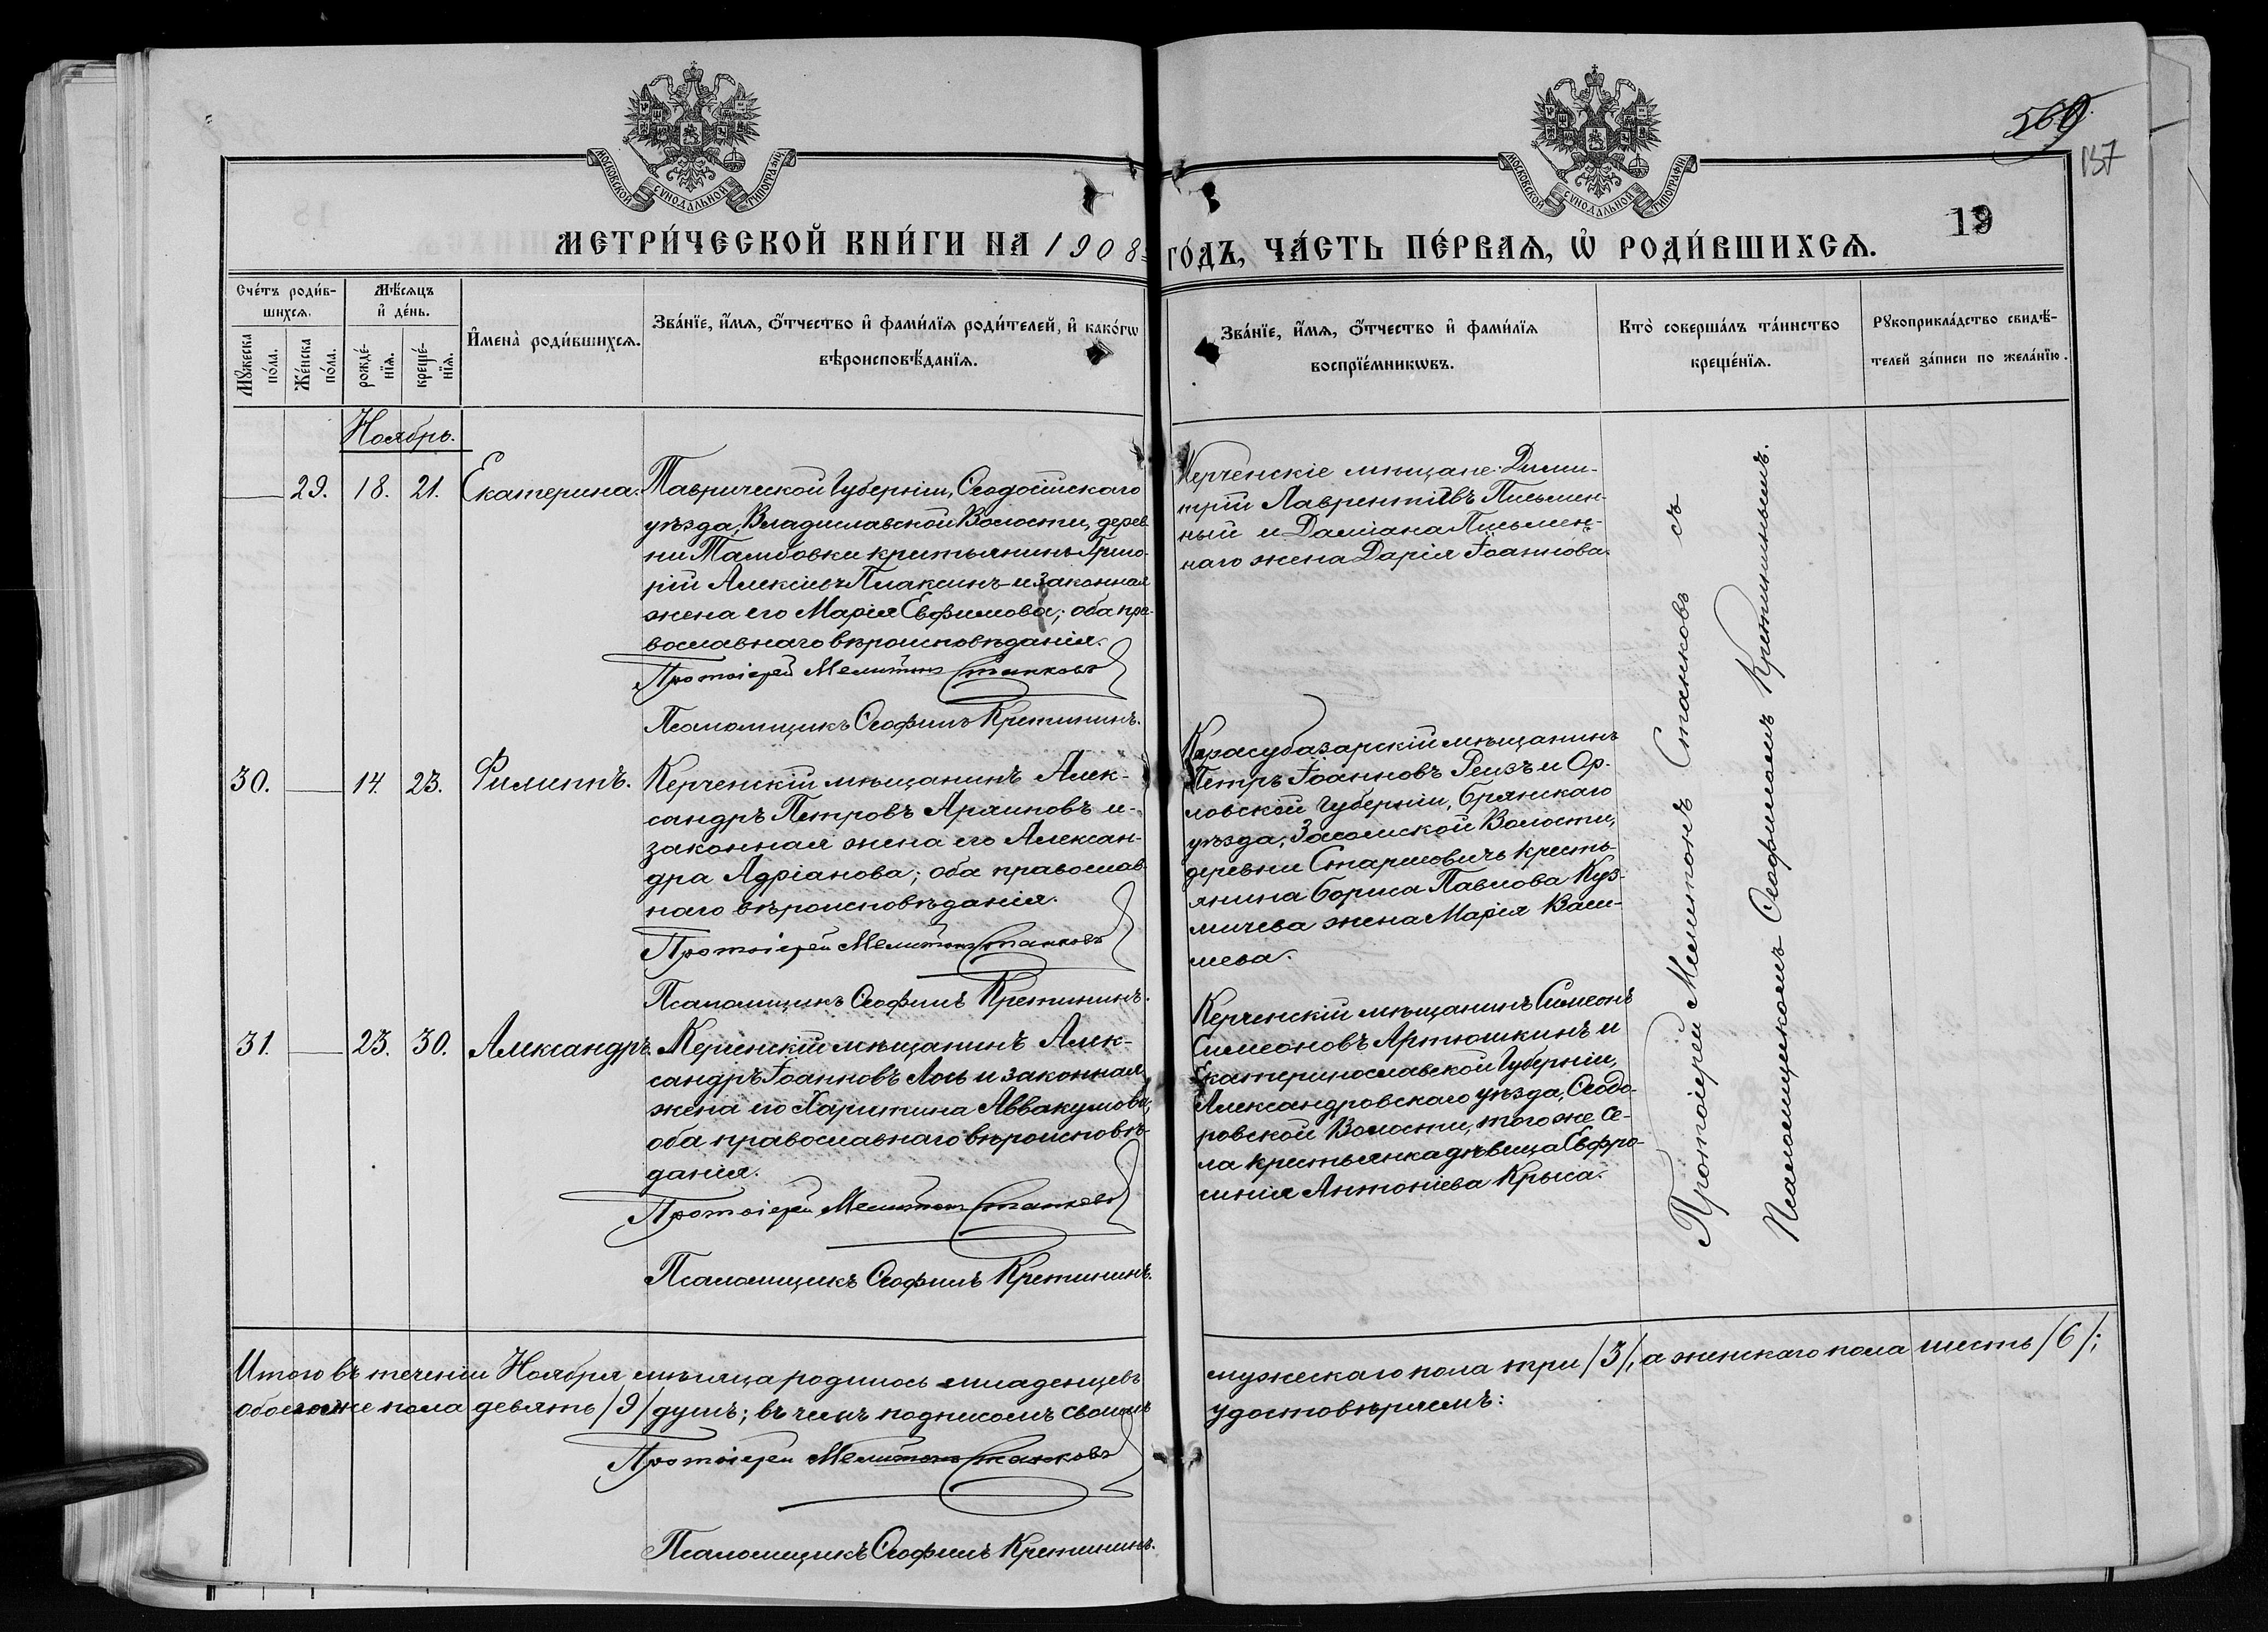 569
137
19
МОСКОВСКОЙ СѴНОДАЛЬНОЙ ТИПОГРАФІИ
МОСКОВСКОЙ СѴНОДАЛЬНОЙ ТИПОГРАФІИ
МЕТРИ́ЧЕСКОЙ КНИ́ГИ НА 1908
ГО́ДЪ, ЧА́СТЬ ПЕ́РВАѦ, Ѡ҆ РОДИ́ВШИХСѦ.
Сче́тъ роди́в-
шихсѧ.
Мꙋ́жеска
по́ла.
Же́нска
по́ла.
Мѣ́сѧцъ
и҆ де́нь.
рожде́-
нїѧ.
креще́-
нїѧ.
И҆мена̀ роди́вшихсѧ.
Зва́нїе, и҆́мѧ, ѻ҆́тчество и҆ фами́лїѧ роди́телей, и҆ како́гѡ
вѣроисповѣ́данїѧ.
Зва́нїе, и҆́мѧ, ѻ҆́тчество и҆ фами́лїѧ
воспрїе́мникѡвъ.
Кто̀ соверша́лъ та́инство
креще́нїѧ.
Рꙋкоприкла́дство свидѣ́-
телей за́писи по жела́нїю.
Ноябрь.
29. 18. 21. Екатерина.
Таврической Губерніи, Ѳеодосійскаго
уѣзда, Владиславской Волости, дерев-
ни Тамбовки крестьянинъ Григо-
рій Алексіевъ Плаксинъ и законная
жена его Марія Евфимова; оба пра-
вославнаго вѣроисповѣданія.
Протоіерей Мелитонъ Станковъ
Псаломщикъ Ѳеофилъ Кретининъ.
Керченскіе мѣщане: Дими-
трій Лаврентіевъ Письмен-
ный и Даміана Письмен-
наго жена Дарія Іоаннова.
30. 14. 23. Филиппъ.
Керченскій мѣщанинъ Алек-
сандръ Петровъ Арлиновъ и
законная жена его Алексан-
дра Адріанова; оба православ-
наго вѣроисповѣданія.
Протоіерей Мелитонъ Станковъ
Псаломщикъ Ѳеофилъ Кретининъ.
Карасубазарскій мѣщанинъ
Петръ Іоанновъ и Ор-
ловской Губерніи, Брянскаго
уѣзда, Волости,
деревни кресть-
янина Бориса Павлова Куз-
мичева жена Марія Васи-
лева.
31. 23. 30. Александръ.
Керченскій мѣщанинъ Алек-
сандръ Іоанновъ Лось и законная
жена его Харитина Аввакумова,
оба православнаго вѣроисповѣ-
данія.
Протоіерей Мелитонъ Станковъ
Псаломщикъ Ѳеофилъ Кретининъ.
Керченскій мѣщанинъ Симеонъ
Симеоновъ Артюшкинъ и
Екатеринославской Губерніи,
Александровскаго уѣзда, Ѳеодо-
ровской Волости, того же се-
ла крестьянка дѣвица Евфро-
синія Антоніева Крыса.
Протоіерей Мелитонъ Станковъ съ
Псаломщикомъ Ѳеофиломъ Кретининымъ.
Итого въ теченіи Ноября мѣсяца родилось младенцевъ
мужескаго пола три /3/, а женскаго пола шесть /6/;
обоего же пола девять /9/ душъ; въ чемъ подписомъ своимъ
удостовѣряемъ:
Протоіерей Мелитонъ Станковъ
Псаломщикъ Ѳеофилъ Кретининъ.